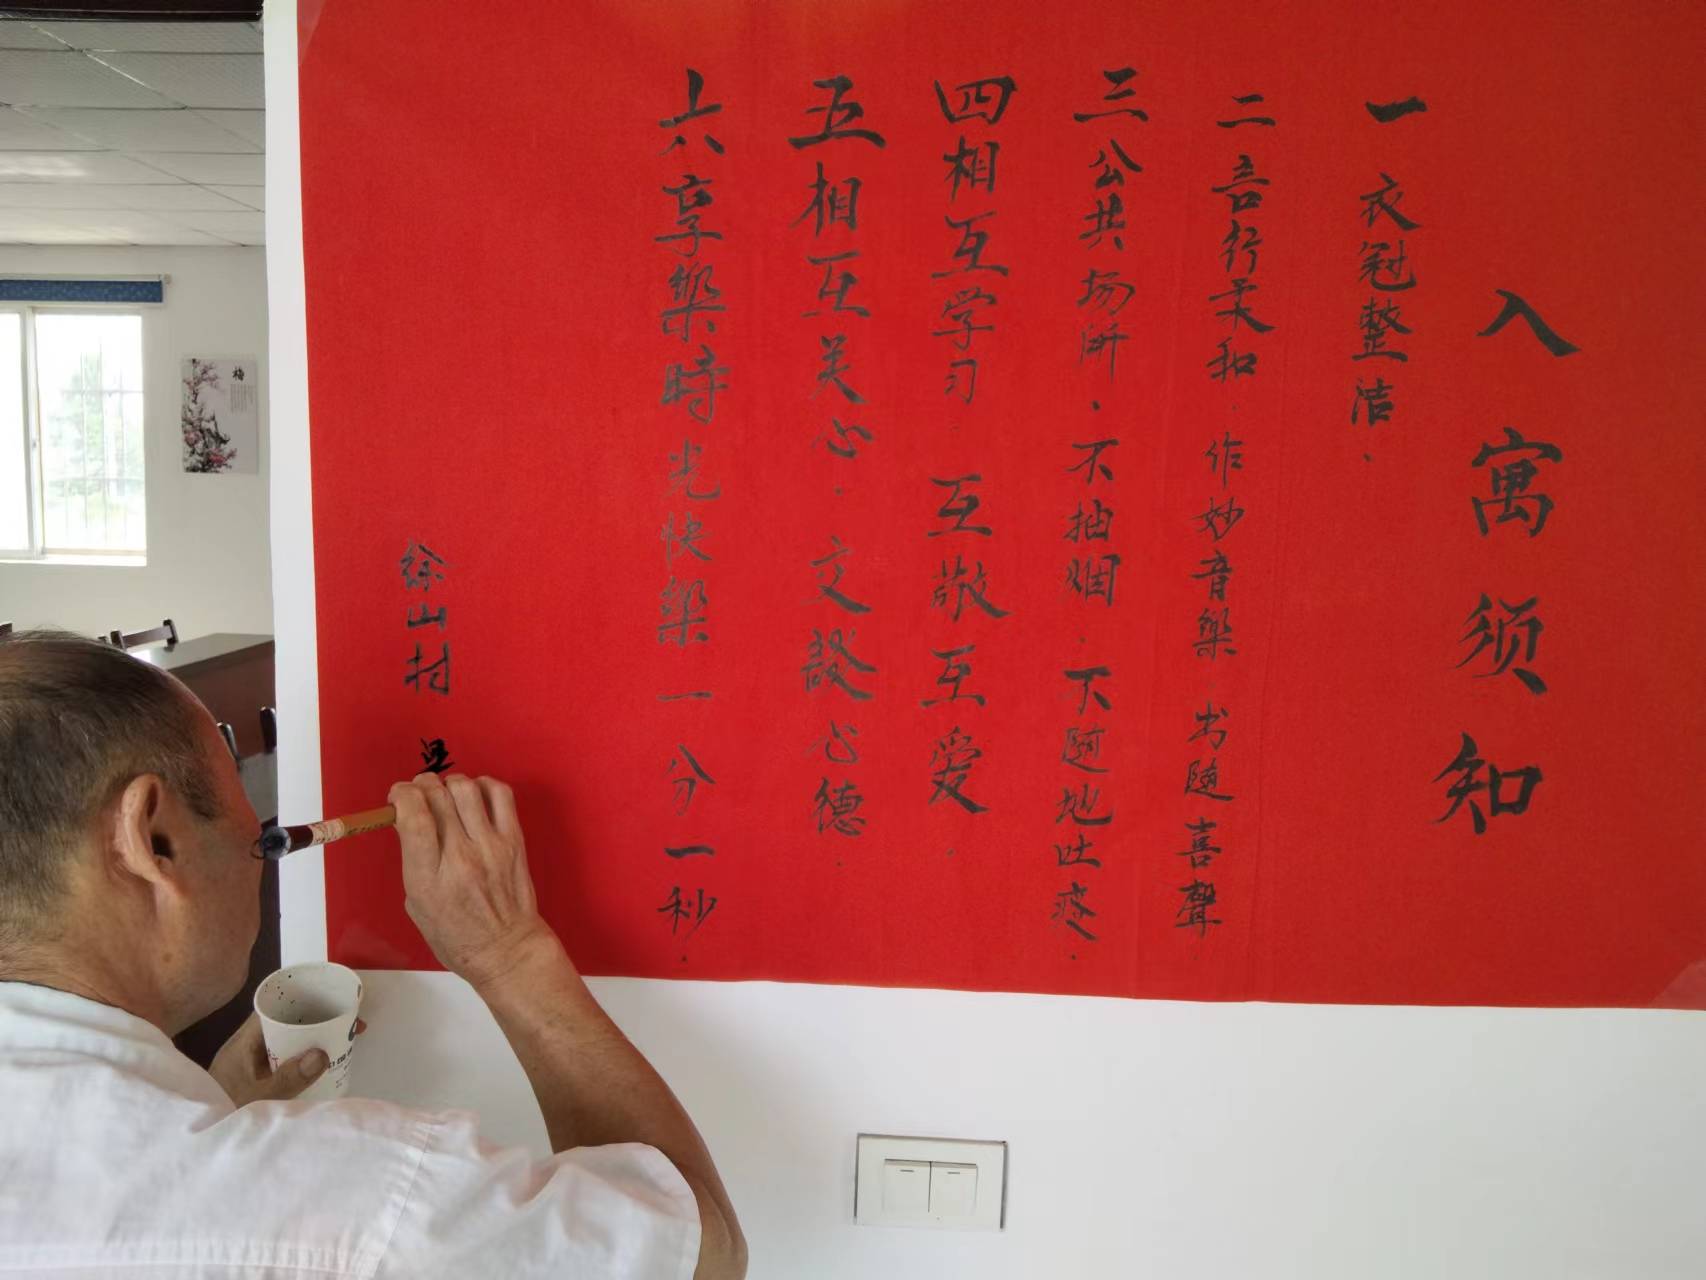 入寓须知
一衣冠整洁.
二言行柔和.作妙音樂.出随喜聲.
三公共场所.不抽烟.不随地吐痰.
四相互学习.互敬互爱.
五相互关心.交談心德.
六享樂時光快樂一分一秒.
徐山村
梅